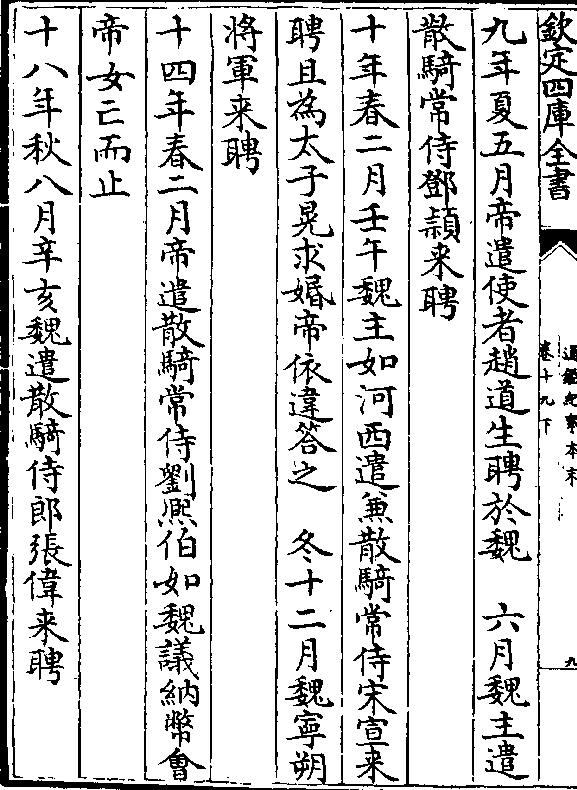 欽定四庫全書
通鑑紀事本末
卷十九下
九
九年夏五月帝遣使者趙道生聘於魏　六月魏主遣
散騎常侍鄧穎来聘
十年春二月壬午魏主如河西遣兼散騎常侍宋宣来
聘且為太子晃求婚帝依違答之　冬十二月魏寧朔
將軍来聘
十四年春二月帝遣散騎常侍劉熈伯如魏議納幣會
帝女亡而止
十八年秋八月辛亥魏遣散騎侍郎張偉来聘